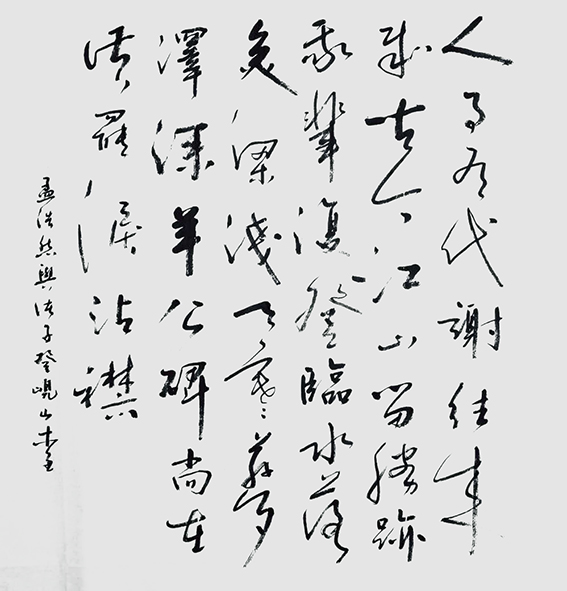 人事有代謝往來
成古今江山留勝跡
我輩復登臨水落
魚梁淺天寒夢
澤深羊公碑尚在
讀罷淚沾襟
孟浩然與諸子登峴山